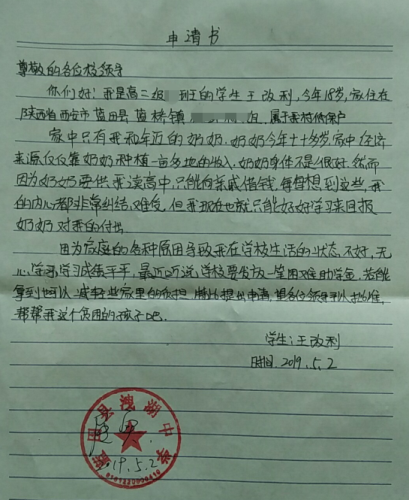 申请书
尊敬的各位校领导
你们好！我是高二级 班的学生王改利，今年18岁，家住在
陕西省西安市蓝田县蓝桥镇 ，属于农村低保户
家中只有我和年迈的奶奶。奶奶今年七十多岁，家中经济
来源仅仅靠奶奶种植一亩多地的收入，奶奶身体不是很好，然而
因为奶奶要供我读高中，只能向亲戚借钱，每每想到这些，我
的内心都非常纠结、难受，但我现在也就只能好好学习来回报
奶奶对我的付出。
因为家庭的各种原因导致我在学校生活的状态不好，无
心学习，学习成绩平平，最近听说学校要发放一笔困难助学金，若能
拿到也可以减轻些家里的负担，特此提出申请，望各位领导予以批准，
帮帮我这个贫困的孩子吧。
学生：王改利
时间：2019.5.2
蓝田县 湖中学
19.5.2